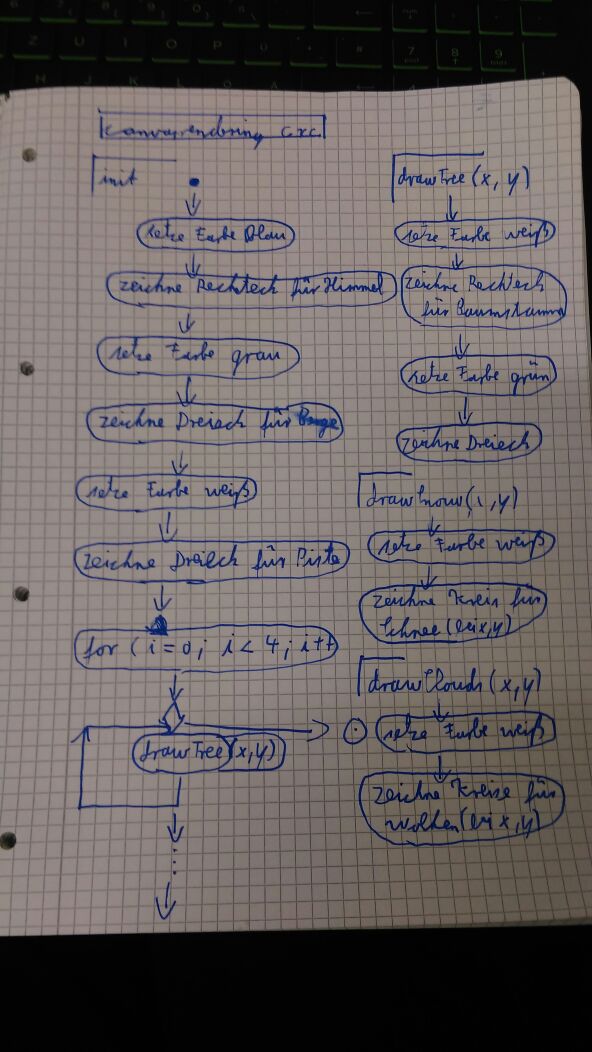 Canvasrendering CRC
init
setze Farbe Blau
zeichne Rechteck für Himmel
setze Farbe grau
zeichne Dreieck für Berge
setze Farbe weiß
zeichne Dreieck für Piste
for ( i = 0 ; i < 4 ; i++
drawTree (x,y)
drawTree (x, y)
setze Farbe weiß
zeichne Rechteck
für Baumstamm
setze Farbe grün
zeichne Dreieck
drawSnow(x,y)
setze Farbe weiß
zeichne Kreis für
Schnee(bei x,y)
drawClouds (x,y)
setze Farbe weiß
zeichne Kreise für
Wolken(bei x,y)
Z U I O P Ü
7 8 9